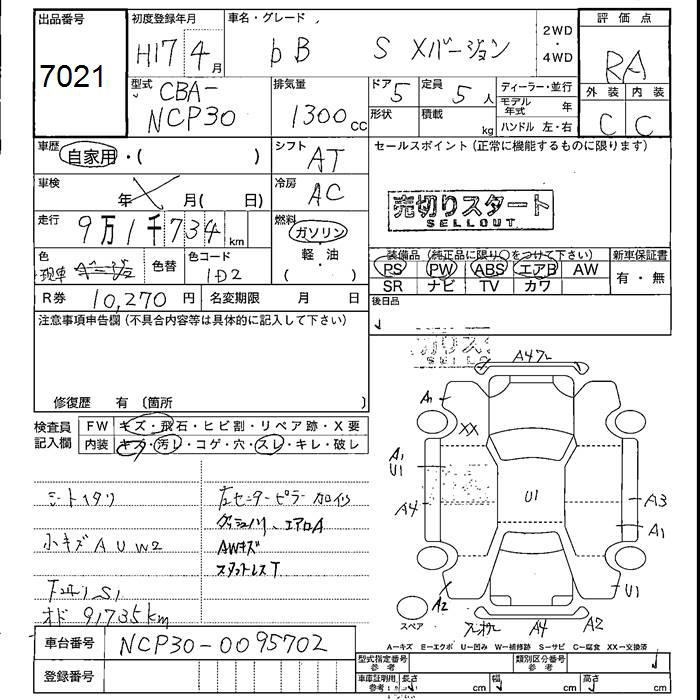 出品番号 初度登録年月 車名・グレード 2WD・4WD 評価点
7021 H17 4月 bB S Xバージョン RA
型式 CBA-NCP30 排気量 1300cc ドア 5 定員 5人 ディーラー・並行 外装 内装
形状 積載 kg モデル年式 年 C C
ハンドル 左・右
車歴 自家用・( ) シフト AT セールスポイント(正常に機能するものに限ります)
車検 年 月( 日) 冷房 AC
売切りスタート
SELLOUT
走行 9万1千734km 燃料 ガソリン
軽・油
( )
色 現車 色替 色コード 1D2
装備品(純正品に限り○をつけて下さい) 新車保証書
PS PW ABS エアB AW 有・無
SR ナビ TV カワ
R券 10,270円 名変期限 月 日 後日品
注意事項申告欄(不具合内容等は具体的に記入して下さい)
修復歴 有(箇所 )
検査員記入欄 FW キズ・飛石・ヒビ割・リペア跡・X要
内装 キズ・汚レ・コゲ・穴・スレ・キレ・破レ
シートヘタリ 左センターピラー加修
ダッシュノリ、エアロA
小キズAUW2 AWキズ
スタットレスT
S1
オド 91735km
A1
XX
A1
U1
A4
U1
A3
A1
A2
U1
スペア
A4
A2
車台番号 NCP30-0095702
登録番号
A─キズ E─エクボ U─凹み W─補修跡 S─サビ C─腐食 XX─交換済
型式指定番号 参考 類別区分番号 参考
車庫証明用 参考 長さ cm 幅 cm 高さ cm